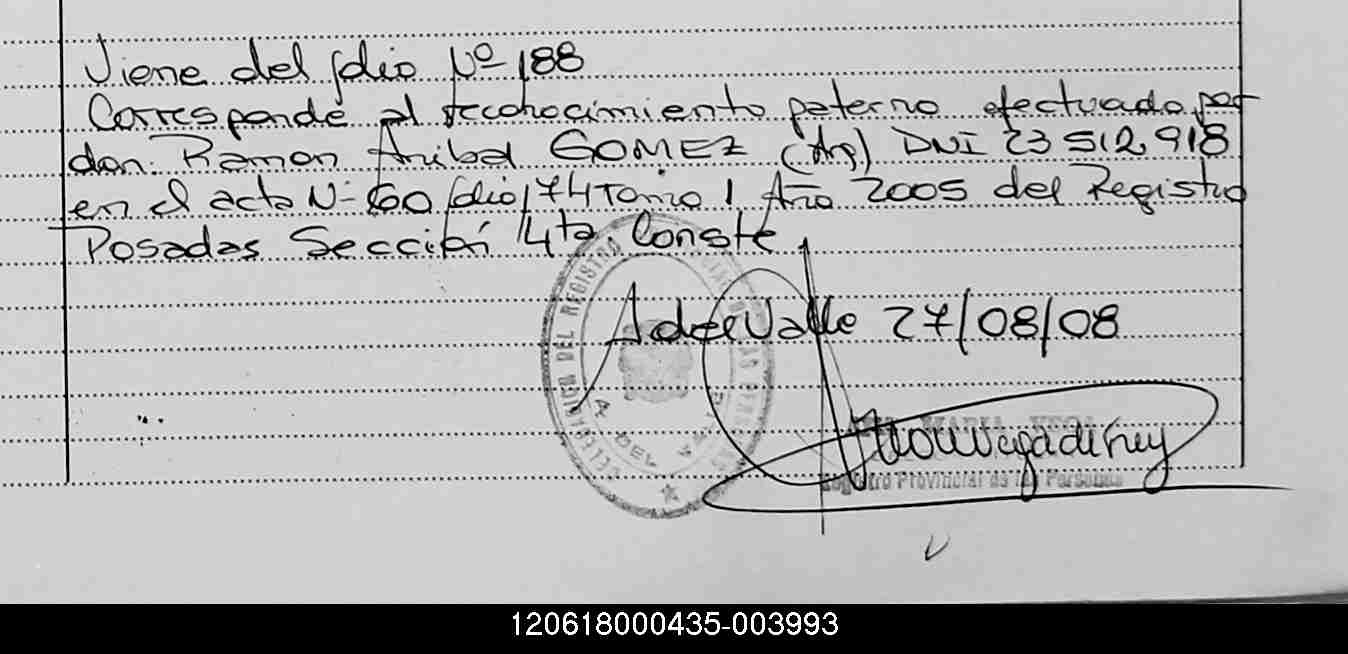 Viene del folio Nº 188
Corresponde al reconocimiento paterno efectuado por
don Ramon Anibal GOMEZ (Arg) DNI 23 512 918
en el acta Nº 60 folio 174 Tomo 1 Año 2005 del Registro
Posadas Sección 4ta. Conste
A del Valle 27/08/08
DEL REGISTRO
A DEL
MARIA VEGA
Registro Provincial de las Personas
120618000435-003993